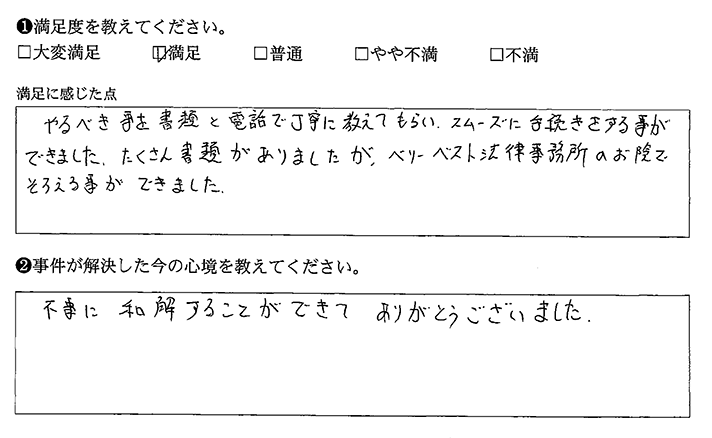 ❶満足度を教えてください。
□大変満足 ☑満足 □普通 □やや不満 □不満
満足に感じた点
やるべき事を書類と電話で丁寧に教えてもらい、スムーズに手続きをする事が
できました。たくさん書類がありましたが、ベリーベスト法律事務所のお陰で
そろえる事ができました。
❷事件が解決した今の心境を教えてください。
不事に 和解することができて ありがとうございました。